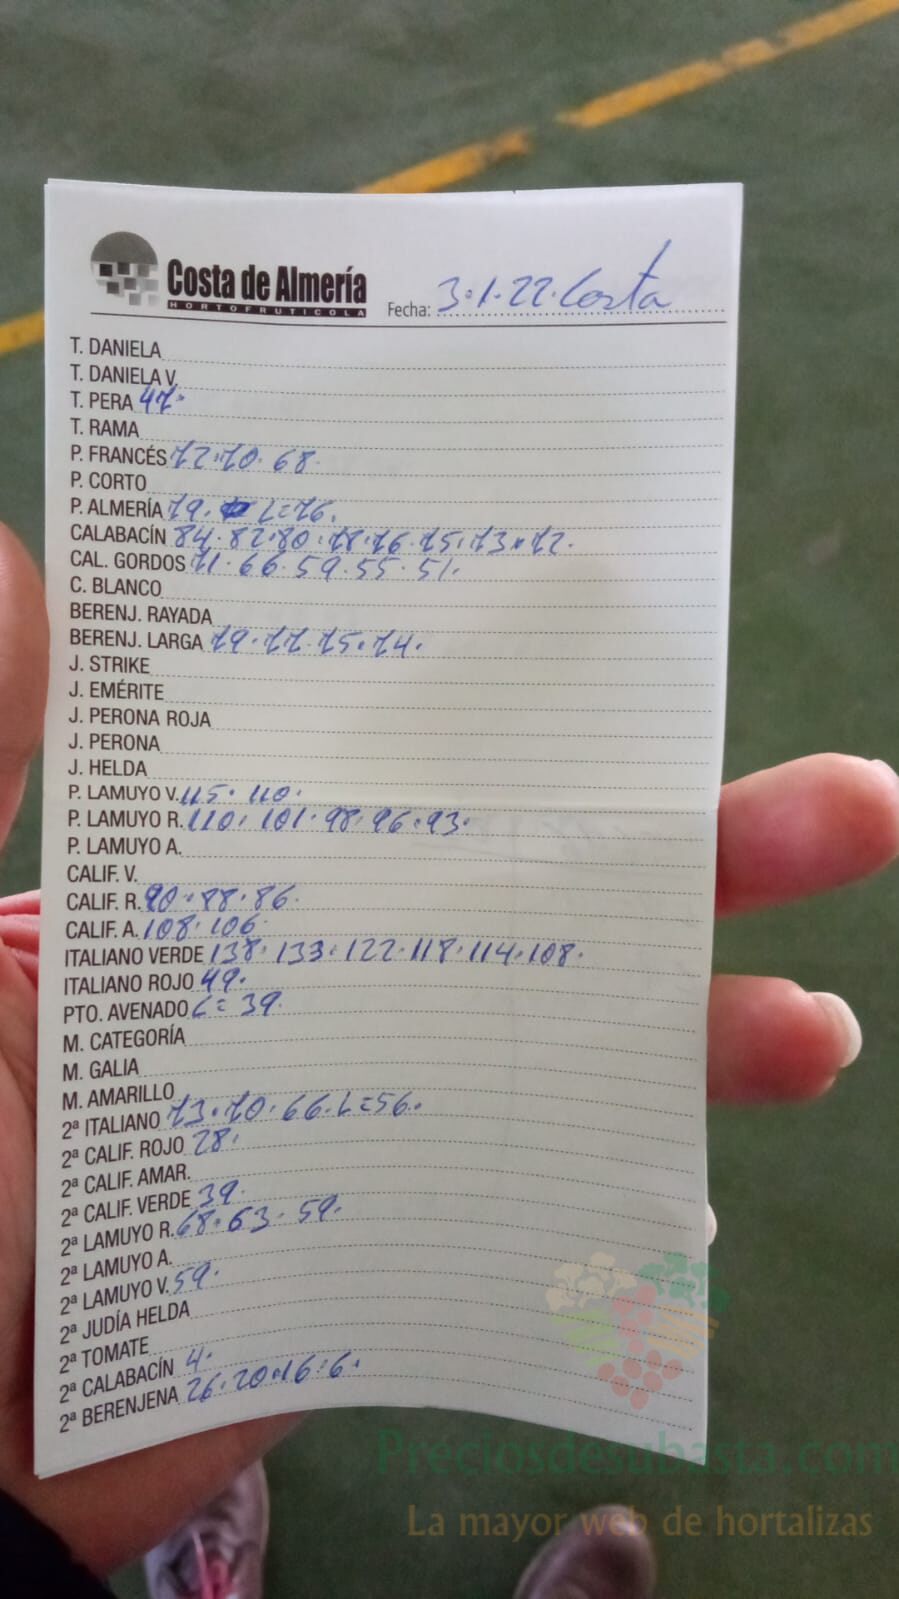 Costa de Almería
HORTOFRUTICOLA
Fecha: 3.1.22. Costa
T. DANIELA
T. DANIELA V.
T. PERA 47.
T. RAMA
P. FRANCÉS 72.70.68.
P. CORTO
P. ALMERÍA 79. L=76.
CALABACÍN 84.82.80.78.76.75.73.72.
CAL. GORDOS 71.66.59.55.51.
C. BLANCO
BERENJ. RAYADA
BERENJ. LARGA 79.77.75.74.
J. STRIKE
J. EMÉRITE
J. PERONA ROJA
J. PERONA
J. HELDA
P. LAMUYO V. 115.110.
P. LAMUYO R. 110.101.98.96.93.
P. LAMUYO A.
CALIF. V.
CALIF. R. 90.88.86.
CALIF. A. 108.106
ITALIANO VERDE 138.133.122.118.114.108.
ITALIANO ROJO 49.
PTO. AVENADO L=39.
M. CATEGORÍA
M. GALIA
M. AMARILLO
2ª ITALIANO 73.70.66.L=56.
2ª CALIF. ROJO 28.
2ª CALIF. AMAR.
2ª CALIF. VERDE 39.
2ª LAMUYO R. 68.63.59.
2ª LAMUYO A.
2ª LAMUYO V. 59.
2ª JUDÍA HELDA
2ª TOMATE
2ª CALABACÍN 4.
2ª BERENJENA 26.20.16.6.
Preciosdesubasta.com
La mayor web de hortalizas